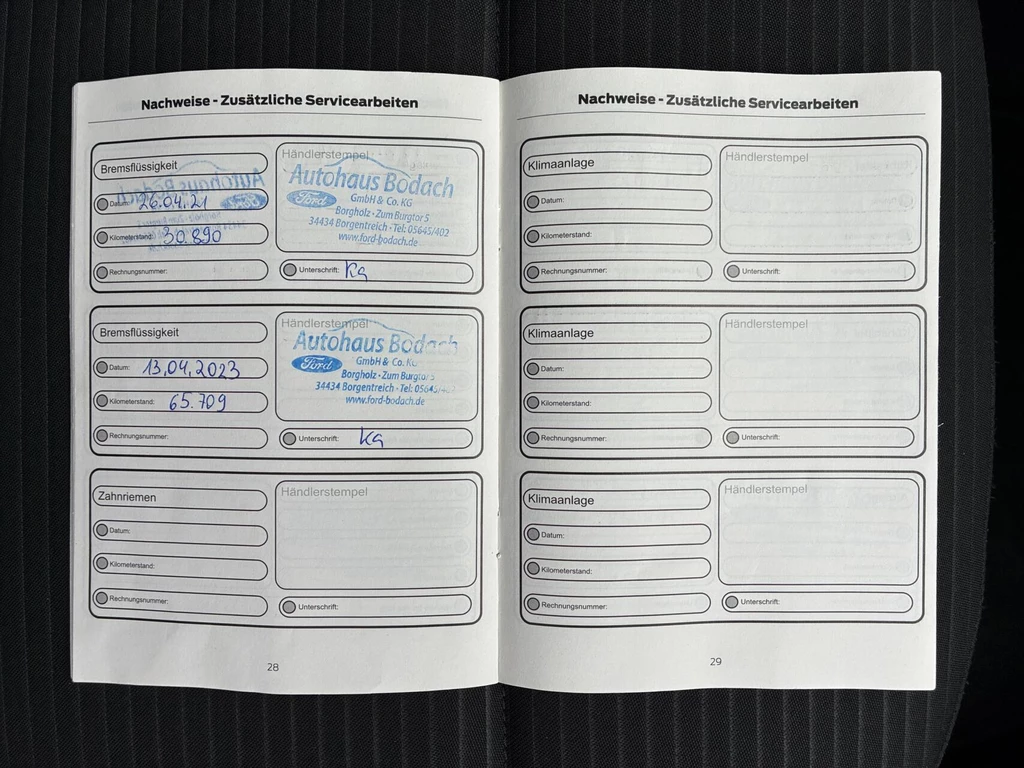 Nachweise - Zusätzliche Servicearbeiten
Bremsflüssigkeit
Datum: 26.04.21
Kilometerstand: 30.890
Rechnungsnummer:
Händlerstempel
Autohaus Bodach
Ford
GmbH & Co. KG
Borgholz · Zum Burgtor 5
34434 Borgentreich · Tel: 05645/402
www.ford-bodach.de
Unterschrift: Kg
Bremsflüssigkeit
Datum: 13.04.2023
Kilometerstand: 65.709
Rechnungsnummer:
Händlerstempel
Autohaus Bodach
Ford
GmbH & Co. KG
Borgholz · Zum Burgtor 5
34434 Borgentreich · Tel: 05645/402
www.ford-bodach.de
Unterschrift: kg
Zahnriemen
Datum:
Kilometerstand:
Rechnungsnummer:
Händlerstempel
Unterschrift:
28
Nachweise - Zusätzliche Servicearbeiten
Klimaanlage
Datum:
Kilometerstand:
Rechnungsnummer:
Händlerstempel
Unterschrift:
Klimaanlage
Datum:
Kilometerstand:
Rechnungsnummer:
Händlerstempel
Unterschrift:
Klimaanlage
Datum:
Kilometerstand:
Rechnungsnummer:
Händlerstempel
Unterschrift:
29